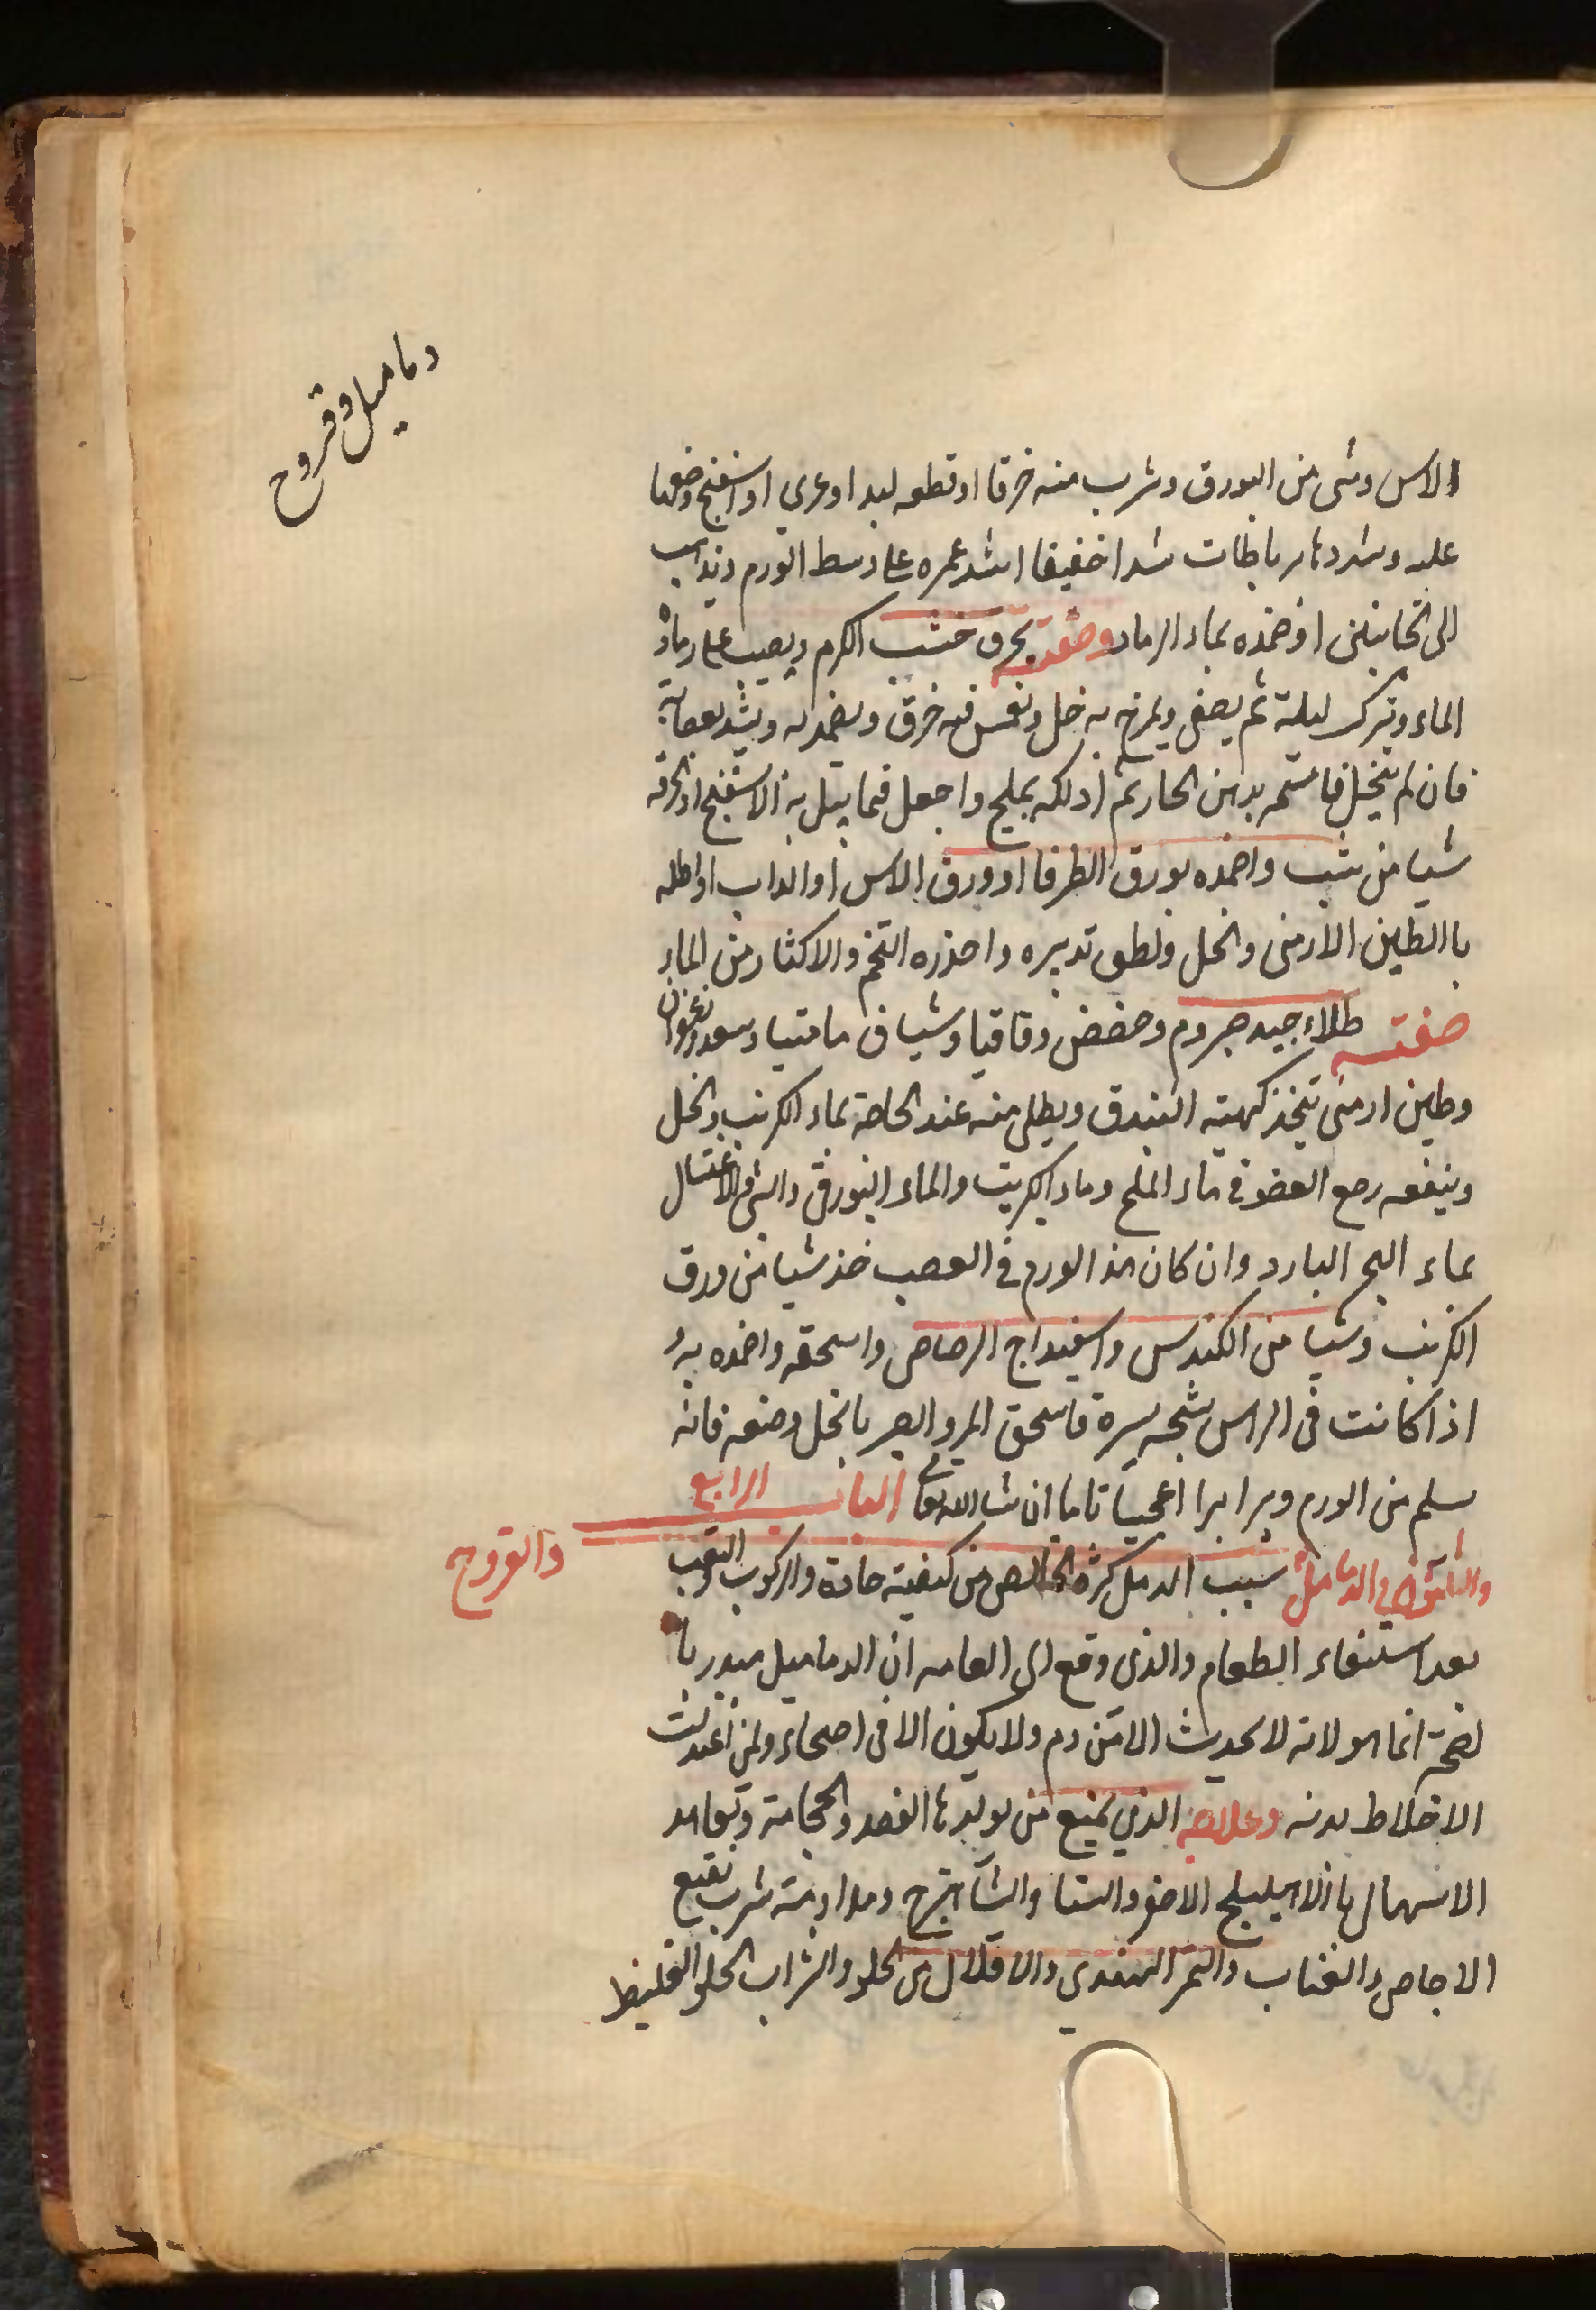 دماميل وقروح
الاس وشى من البورق وشرب منه خرقا او قطعه لبد او عرى او اسفنج وضعها
عليه وشدها برباطات شدا خفيفا اشد عمره على وسط الورم وتذاهب
الى الجانبين او ضمده بماء الرماد وصفته يحرق خشب الكرم ويصب على رماده
الماء ويترك ليلة ثم يصفى ويمزج به خل ويغمس فيه خرق ويضمد به ويشد بعصابة
فان لم يتحلل فامسحه بدهن الحار ثم ادلكه بملح واجعل فيما يبل به الاسفنج او الخرقه
شيا من شب واضمده بورق الطرفا او ورق الاس او السداب او اطله
باالطين الارمنى والخل ولطف تدبيره واحذره التخم والاكثار من الماء
صفته طلاء جيد صبر ومر وحضض وقاقيا وشياف ماميتيا وسعد وزعفران
وطين ارمنى يتخذ كهيئة البندق ويطلى منه عند الحاجة بماء الكرنب والخل
وينفعه وضع العضو فى ماء الملح وماء الكبريت والماء البورقى والشى والاغتسال
بماء البحر البارد وان كان هذا الورم فى العصب خذ شيا من ورق
الكرنب وشيا من الكندس واسفيداج الرصاص واسحقه واضمده به و
اذا كانت فى الراس شجه يسيرة فاسحق المر والصبر بالخل وضعه فانه
يسلم من الورم ويبرا برا اعجيبا تاما ان شاء الله تعالى الباب الرابع
والثلثون فى الدماميل والقروح سبب الدمل كثرة من كيفية حادة والركوب والتعب
بعد استيفاء الطعام والذى وقع الى العامه ان الدماميل ميدريا
لصحة انما هو لانه لا يحدث الا من دم ولا يكون الا فى اصحاء ولمن اعتدلت
الاخلاط بدنه وعلاجه الذى يمنع من تولدها الفصد والحجامة وتعاهد
الاسهال بالاهليلج الاصفر والسنا والشاهترج ومداومة شرب نقيع
الاجاص والعناب والتمر الهندى والاقلال من الحلو والشراب الحلو الغليظ